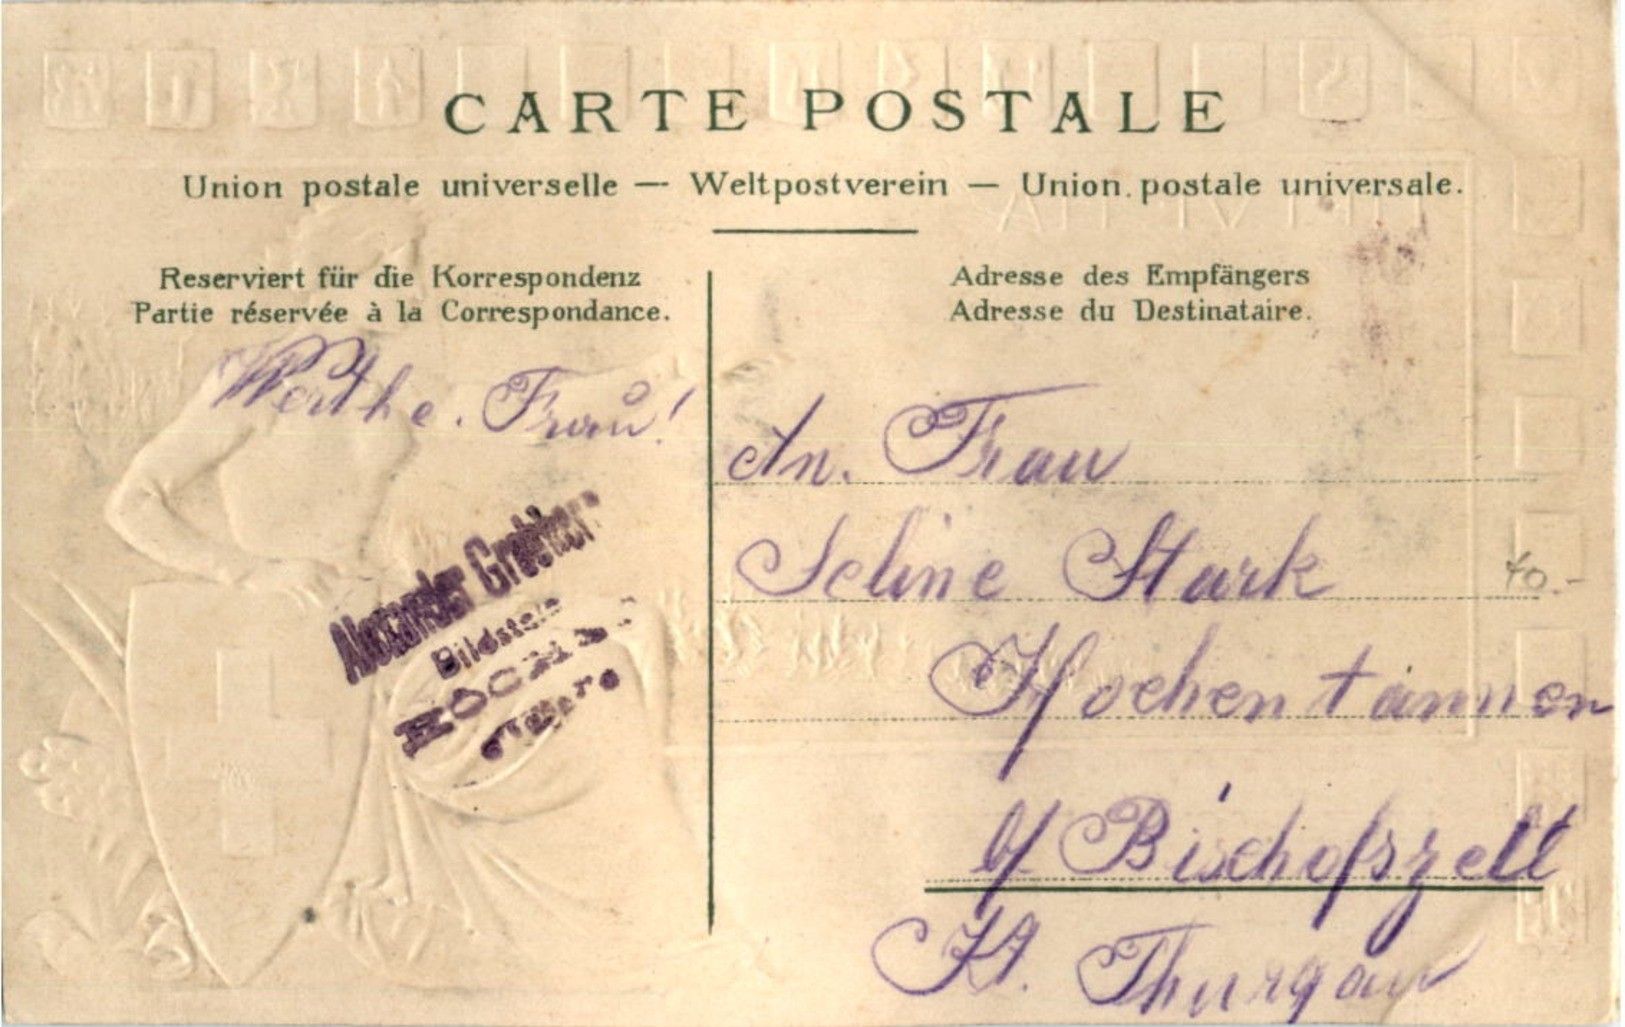 CARTE POSTALE
Union postale universelle — Weltpostverein — Union postale universale.
Reserviert für die Korrespondenz
Partie réservée à la Correspondance.
Adresse des Empfängers
Adresse du Destinataire.
Werthe. Frau!
Alexander
Bildstein
An. Frau
Seline Stark
Hochentannen
b/ Bischofszell
Kt. Thurgau
40.-